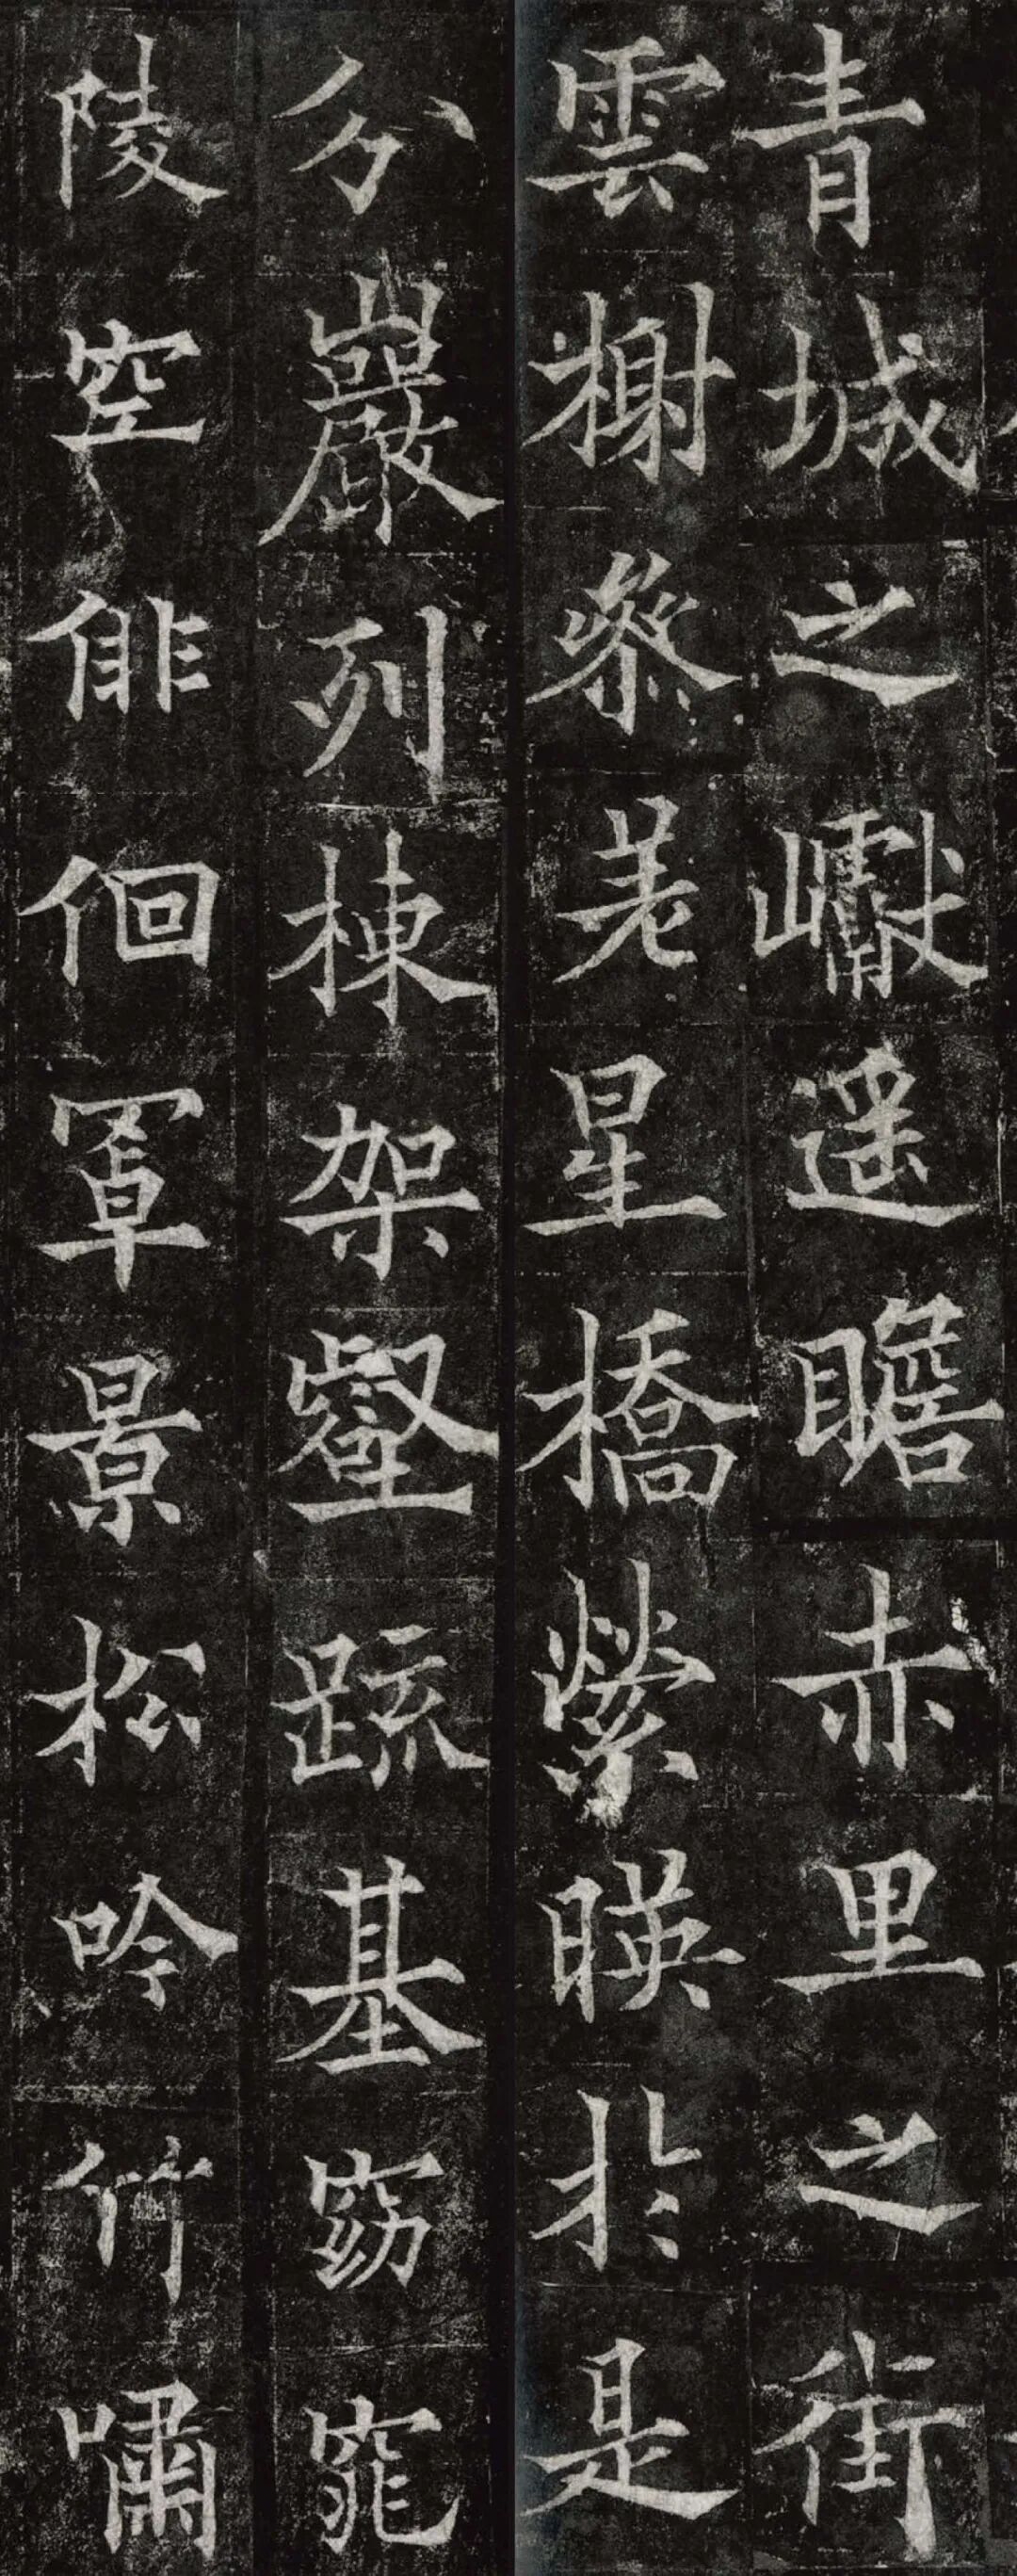 青城之巘遥瞻赤里之街
雲榭叅差星橋縈暎扵是
分巖列棟架壑疏基窈窕
陵空俳佪罩景松吟竹嘯